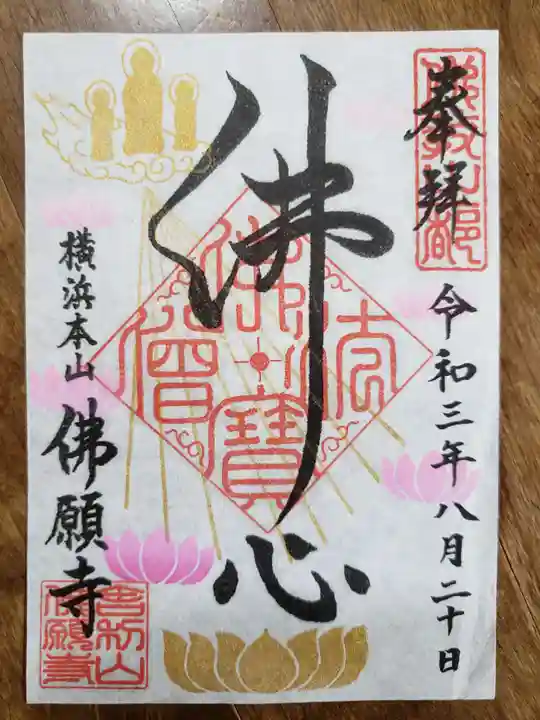 奉拝
令和三年八月二十日
佛心
佛法僧寶
横浜本山
佛願寺